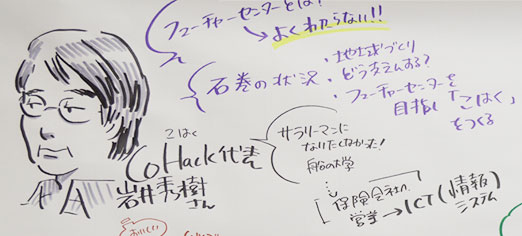 フューチャーセンターとは?
→よくわからない!!
石巻の状況
・地域づくり
どう支えんする?
・フューチャーセンターを
目指し「こはく」
をつくる
こはく
CoHack代表
岩井秀樹
さん
サラリーマンに
なりたくなかった!
船の大学
保険会社
営業→ICT(情報)
システム
おいしい